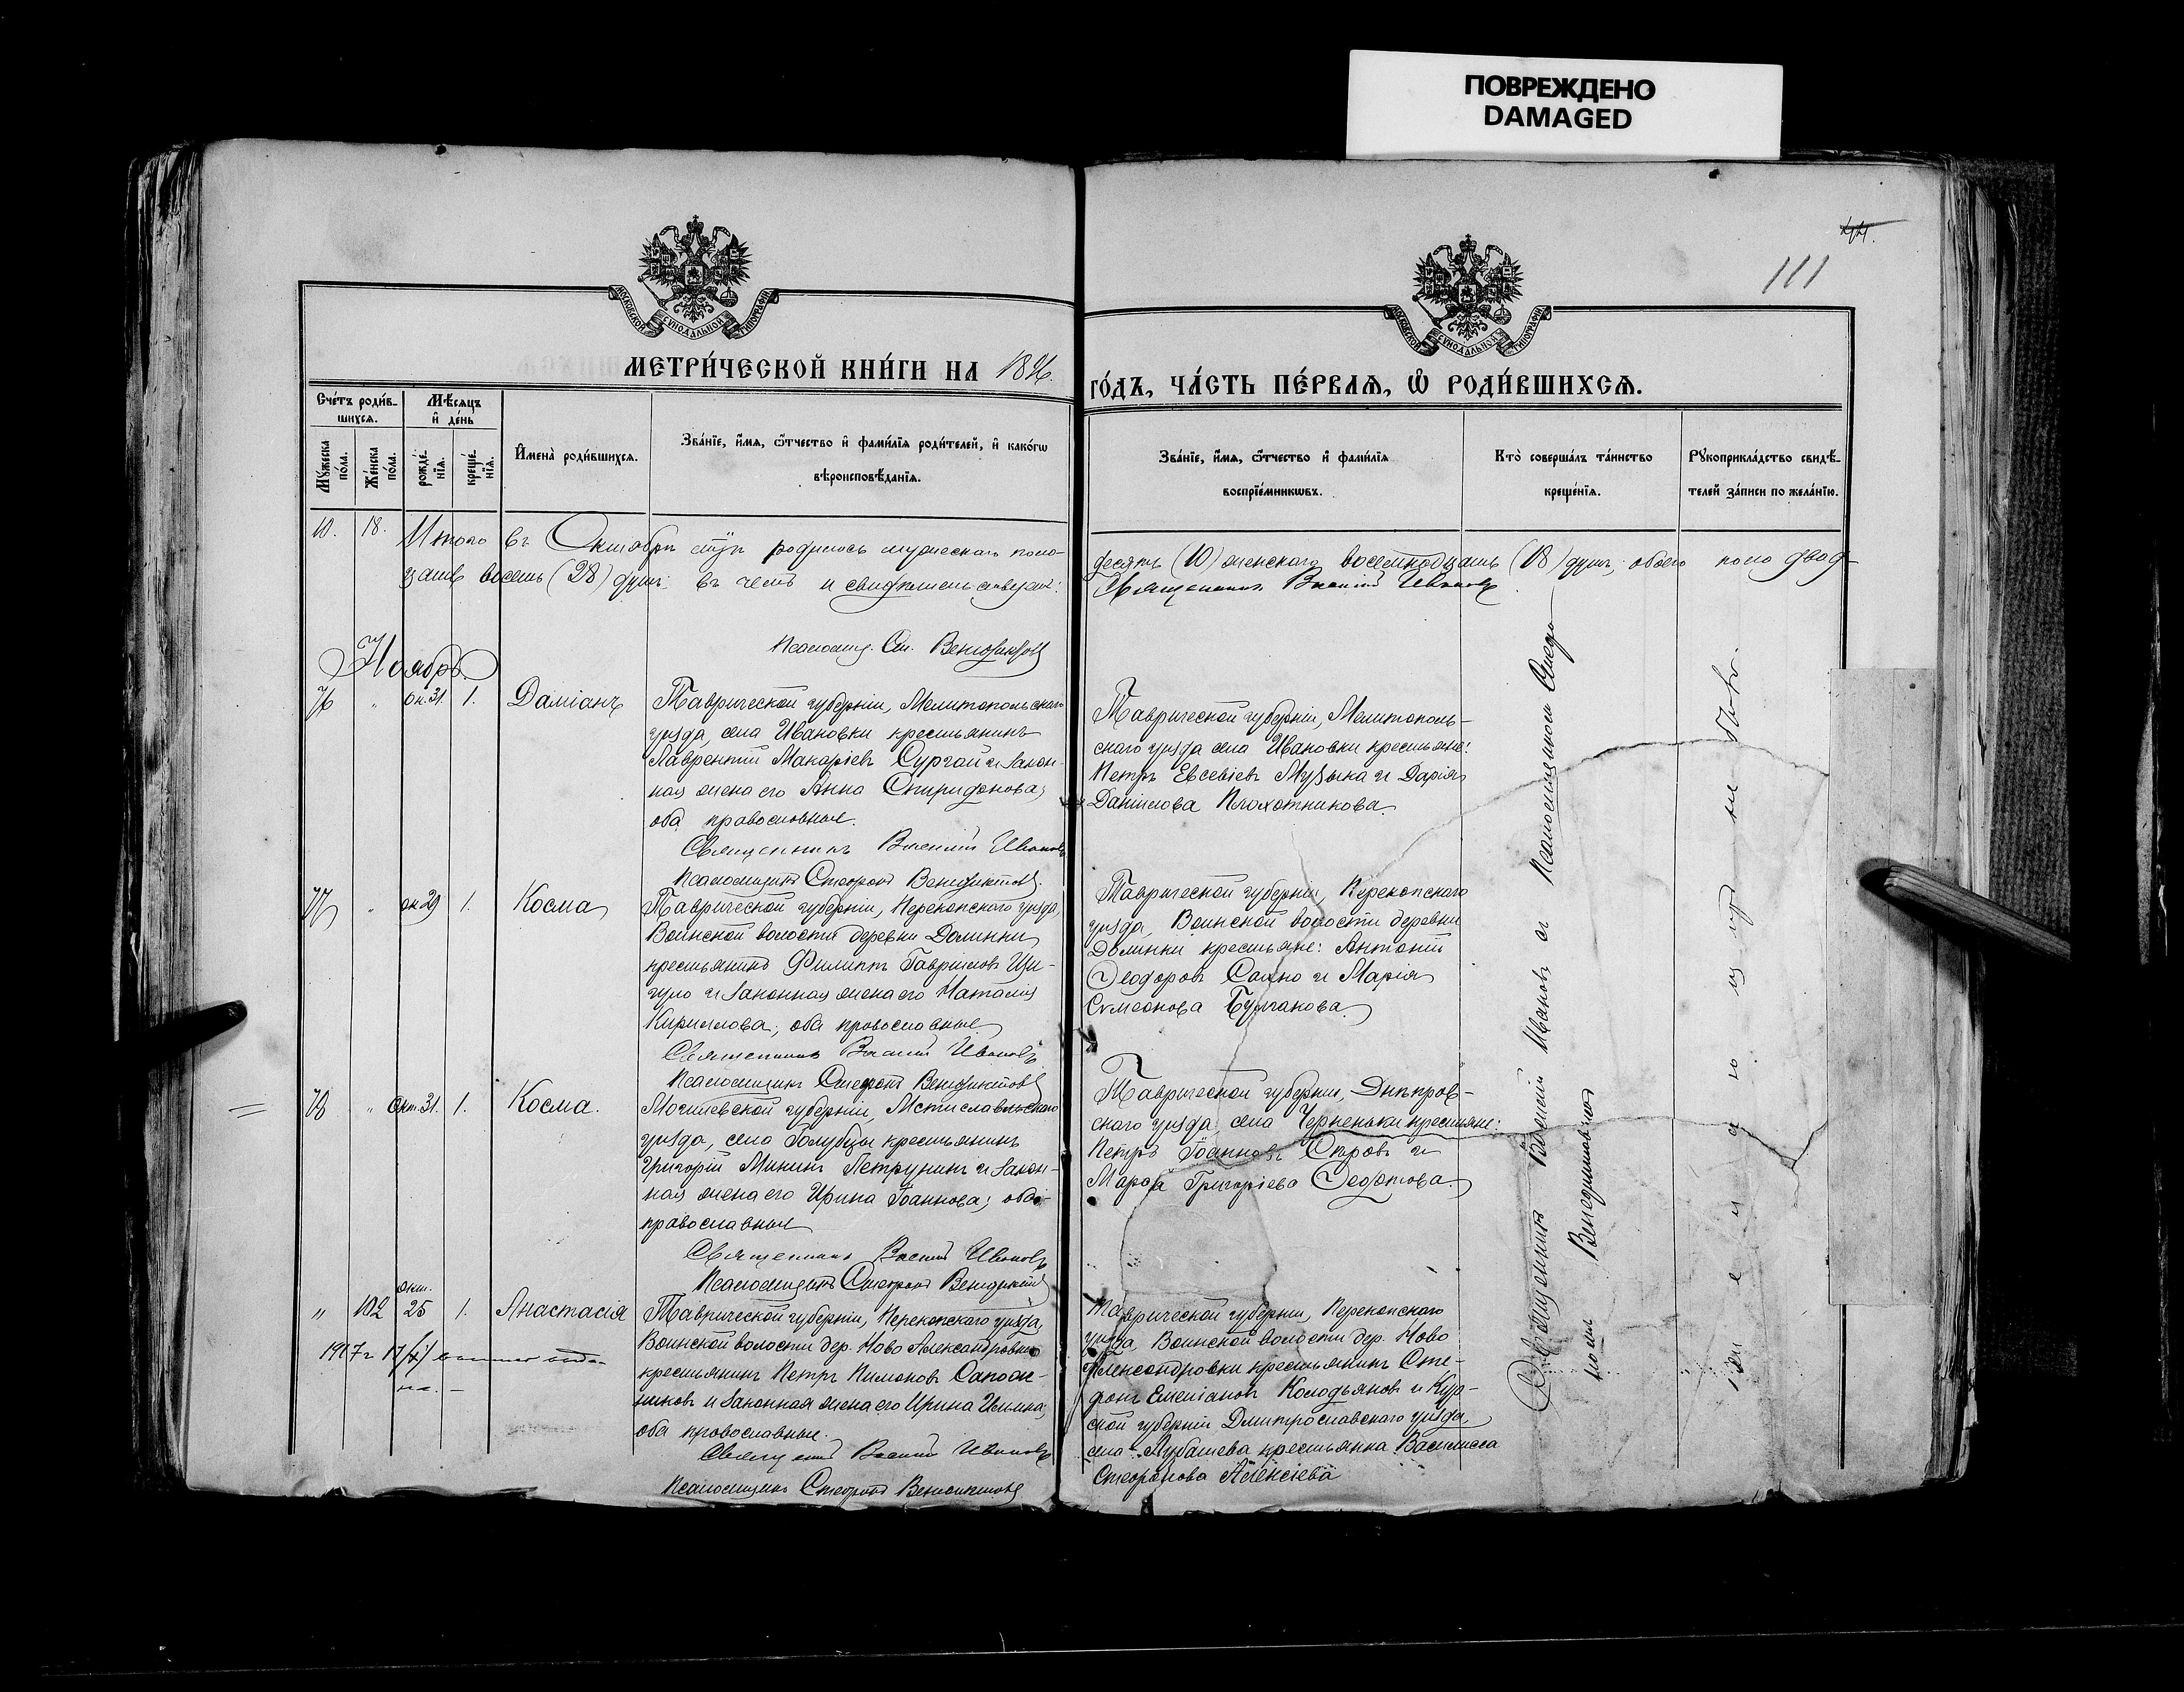 ПОВРЕЖДЕНО
DAMAGED
111
МОСКОВСКОЙ СѴНОДАЛЬНОЙ ТИПОГРАФІИ
МОСКОВСКОЙ СѴНОДАЛЬНОЙ ТИПОГРАФІИ
МЕТРИ́ЧЕСКОЙ КНИ́ГИ НА 1896.
ГО́ДЪ, ЧА́СТЬ ПЕ́РВАѦ, Ѿ РОДИ́ВШИХСѦ.
Сче́тъ роди́в-
шихсѧ.
Мѣсяцъ
и҆ де́нь
Мꙋжеска по́ла.
Же́нска по́ла.
рожде́-нїѧ.
креще́-нїѧ.
И҆мена̀ роди́вшихсѧ.
Зва́нїе, и҆́мя, ѻ҆́тчество и҆ фами́лїѧ роди́телей, и҆ како́гѡ
вѣроисповѣ́данїѧ.
Зва́нїе, и҆́мя, ѻ҆́тчество и҆ фами́лїѧ
воспрїе́мникѡвъ.
Кто̀ соверша́лъ та́инство
креще́нїѧ.
Рꙋкоприкла́дство свидѣ́-
телей за́писи по жела́нїю.
10. 18. Итого въ Октябрѣ мцѣ родилось мужескаго пола
десять (10) женскаго восемнадцать (18) душъ, обоего пола двад-
цать восемь (28) душъ: въ чемъ и свидѣтельствуемъ:
Священникъ Василій Ивановъ
Псаломщ. Ст. Венедиктовъ
Ноябрь
76 " Ок. 31. 1. Даміанъ
Таврической губерніи, Мелитопольскаго
уѣзда, села Ивановки крестьянинъ
Лаврентій Макаріевъ Сургай и закон-
ная жена его Анна Спиридонова,
оба православные.
Священникъ Василій Ивановъ
Псаломщикъ Стефанъ Венедиктовъ
Таврической губерніи, Мелитополь-
скаго уѣзда села Ивановки крестьяне:
Петръ Евсевіевъ Музыка и Дарія
Даніилова Плохотникова.
77 " Ок 29 1. Косма
Таврической губерніи, Перекопскаго уѣзда,
Воинской волости деревни Долинки
крестьянинъ Филиппъ Гавріиловъ Щи-
гуло и законная жена его Наталія
Кириллова, оба православные.
Священникъ Василій Ивановъ
Псаломщикъ Стефанъ Венедиктовъ
Таврической губерніи, Перекопскаго
уѣзда, Воинской волости деревни
Долинки крестьяне: Антоній
Ѳеодоровъ Сално и Марія
Сѵмеонова Булганова.
78 " Окт. 31. 1. Косма.
Могилевской губерніи, Мстиславльскаго
уѣзда, села Голубцы крестьянинъ
Григорій Мининъ Петрунинъ и закон-
ная жена его Ирина Іоаннова; оба
православные
Священникъ Василій Ивановъ
Псаломщикъ Стефанъ Венедиктовъ
Таврической губерніи, Днѣпров-
скаго уѣзда, села Черненьки крестьяне:
Петръ Іоанновъ Старовъ и
Марѳа Григоріева Ѳеодотова.
" 102 Окт. 25 1. Анастасія
Таврической губерніи, Перекопскаго уѣзда,
Воинской волости дер. Ново Александровки
крестьянинъ Петръ Пимоновъ Сапож-
никовъ и законная жена его Ирина Ильина,
оба православные.
Священникъ Василій Ивановъ
Псаломщикъ Стефанъ Венедиктовъ
Таврической губерніи, Перекопскаго
уѣзда, Воинской волости дер. Ново
Александровки крестьянинъ Сте-
фанъ Емеліановъ Колодьяновъ и Кур-
ской губерніи Дмитрославскаго уѣзда,
села Лубашева крестьянка Василиса
Стефанова Алексіева
1917 г
Священникъ Василій Ивановъ съ Псаломщикомъ Стефа-
номъ Венедиктовымъ